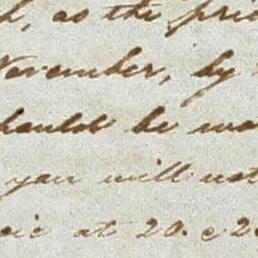 as the pri
November, by
should be wa
you will not
at 20. c 2